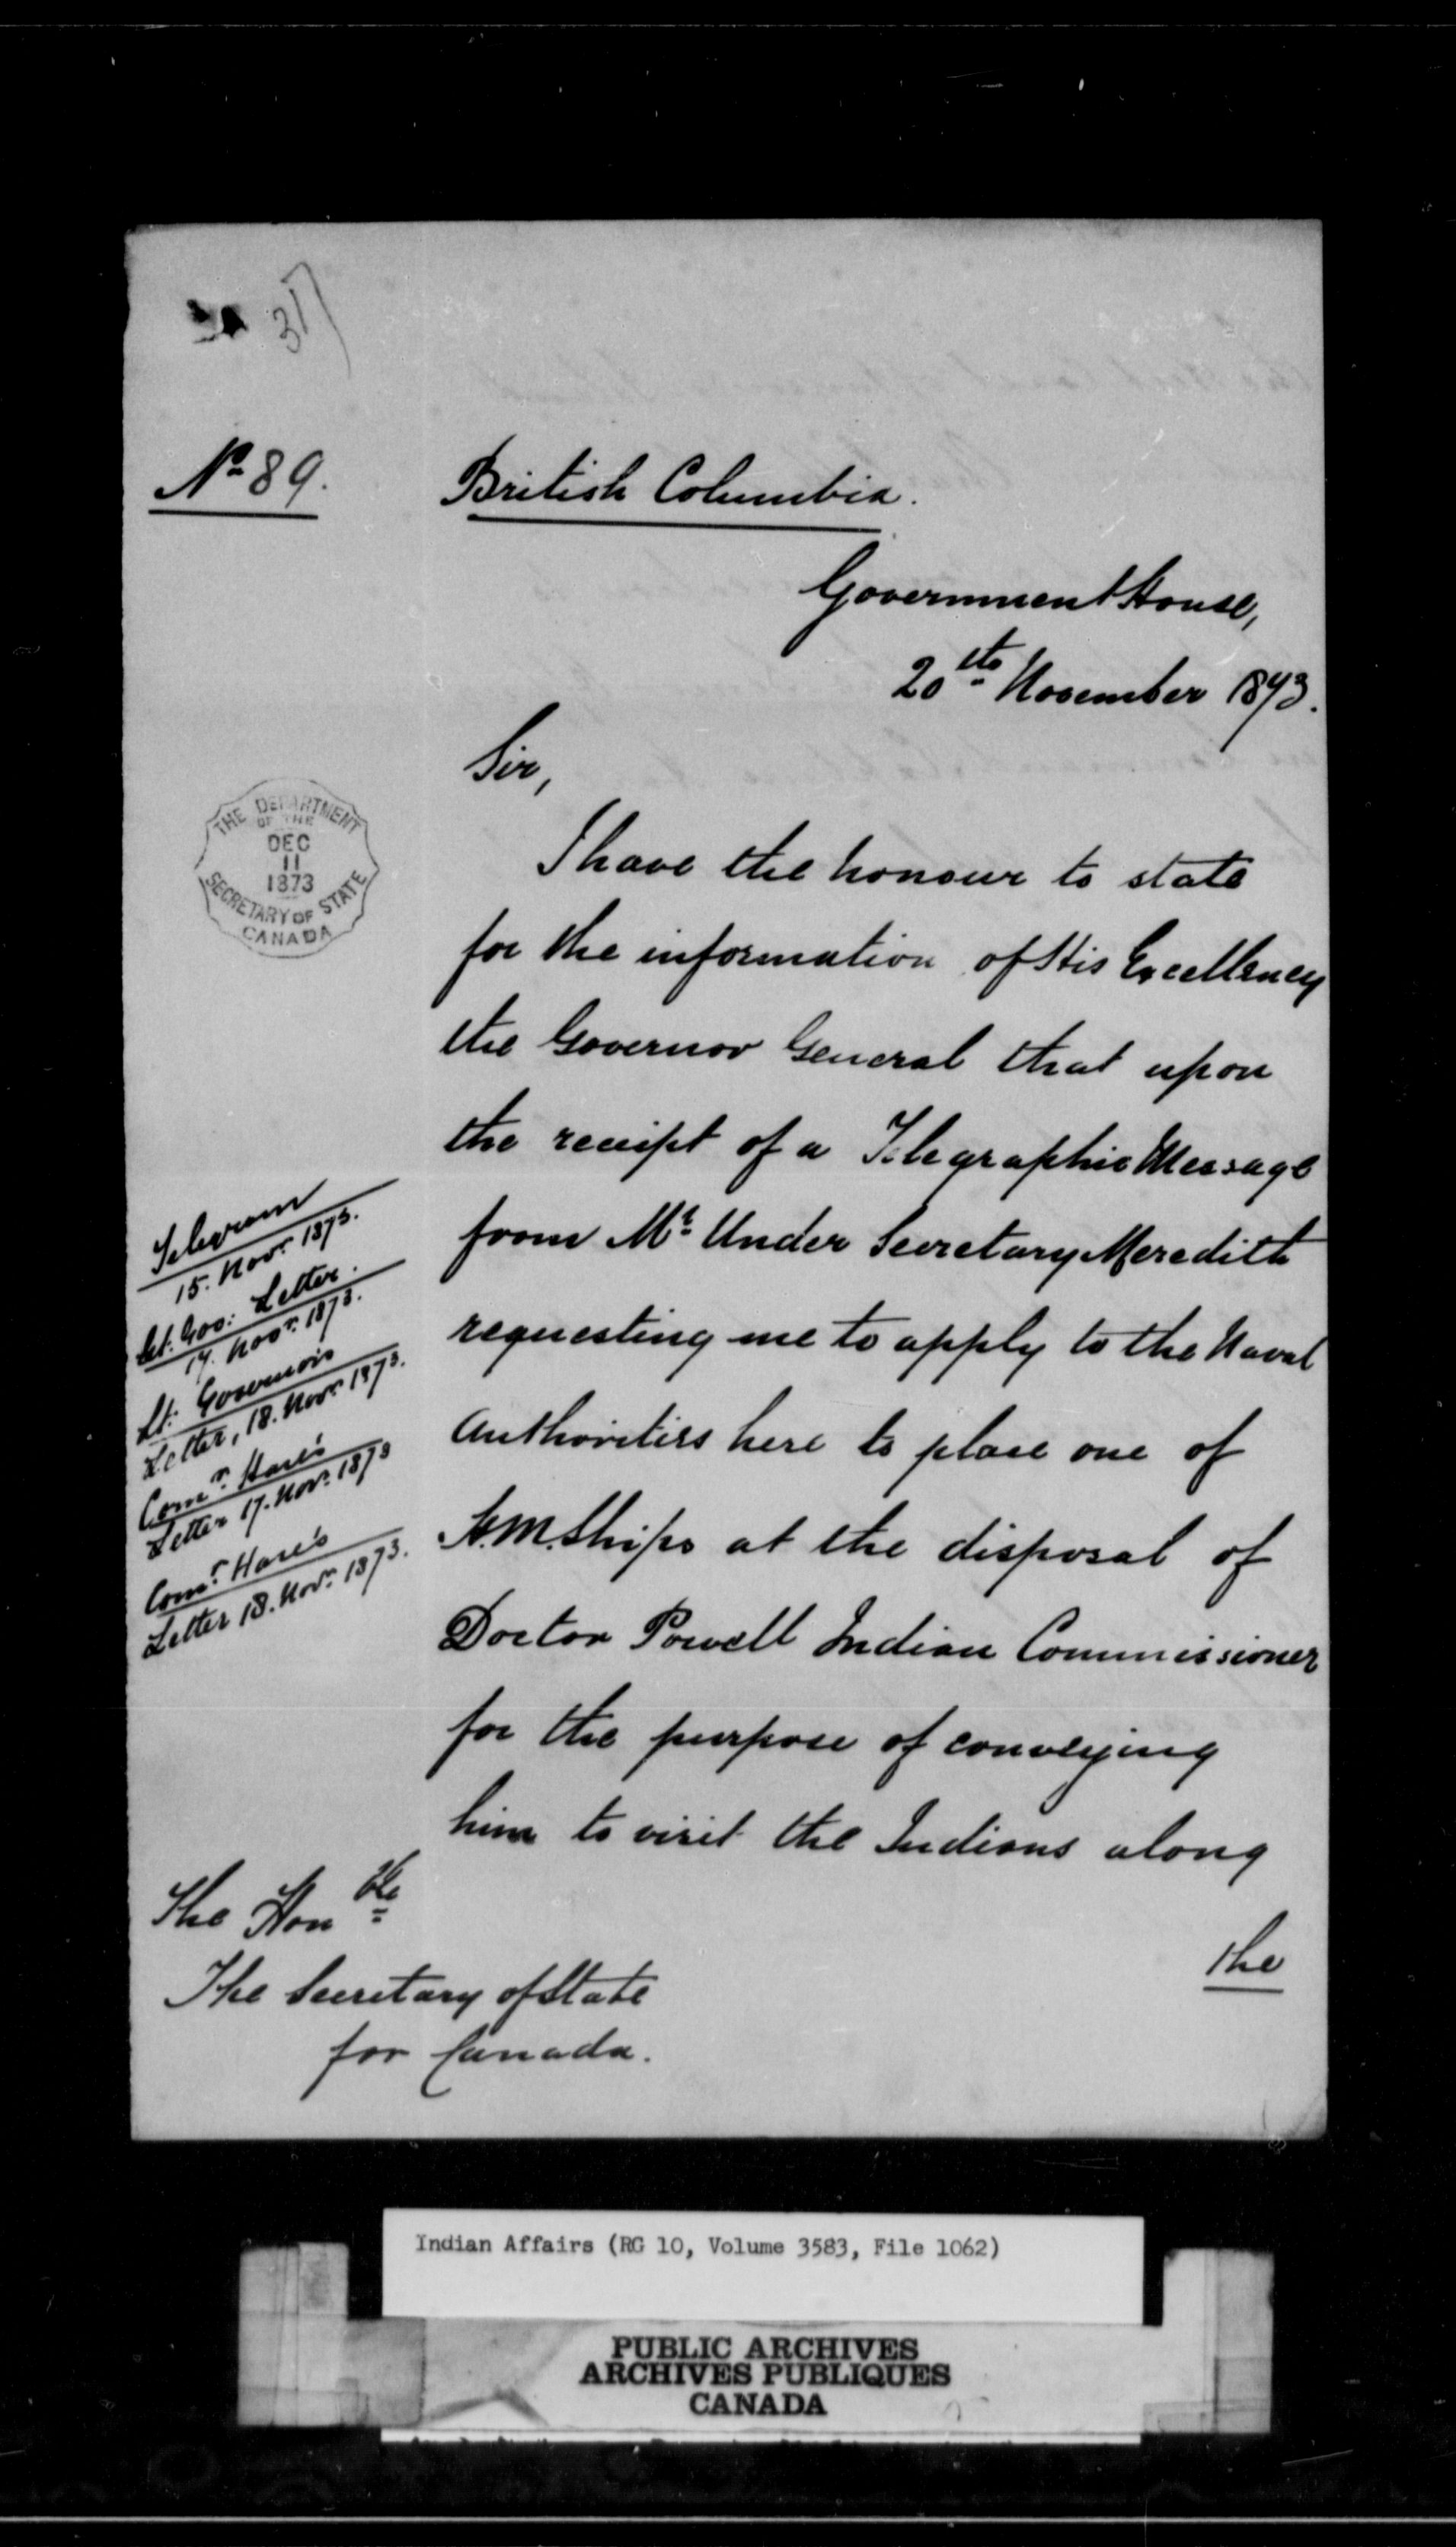 37
No 89.
British Columbia.
Government House,
20th November 1873.
Sir,
THE DEPARTMENT
OF THE
DEC
11
1873
SECRETARY OF STATE
CANADA
I have the honour to state
for the information of His Excellency
the Governor General that upon
the receipt of a Telegraphic Message
from Mr Under Secretary Meredith
requesting me to apply to the Naval
Authorities here to place one of
H.M. Ships at the disposal of
Doctor Powell Indian Commissioner
for the purpose of conveying
him to visit the Indians along
the
Telegram
15. Novr 1873.
Lt. Gov: Letter.
17. Novr. 1873.
Lt. Governor's
Letter, 18. Novr. 1873.
Comr. Hare's
Letter 17. Novr. 1873
Comr. Hare's
Letter 18. Novr. 1873.
The Honble
The Secretary of State
for Canada.
Indian Affairs (RG 10, Volume 3583, File 1062)
PUBLIC ARCHIVES
ARCHIVES PUBLIQUES
CANADA